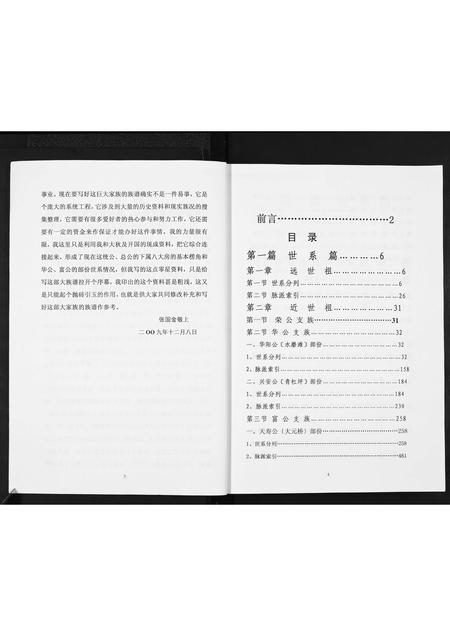 事业。现在要写好这巨大家族的族谱确实不是一件易事，它是
个庞大的系统工程。它涉到大量的历史资料和现实族况的搜
集整理，它需要有很多爱好者的热心参与和努力工作，它还需
要有一定的资金来作保证才能办好这件事情。我的力量很有
限，我这里只是利用我和大秋及开国的现成资料，把它综合连
接起来，形成了现在这统公、总公的下属八大房的基本楞角和
华公、富公的部份世系情况。但我写的这点零星资料，只是给
写这部大族谱拉开个序幕。我印出的这个资料甚是粗浅，这又
是只能起个抛砖引玉的作用，也就是供大家共同修改补充和写
好这部大家族的族谱作参考。
张国金敬上
二OO九年十二月八日
3
前言……………………………2
目 录
第一篇 世 系 篇…………6
第一章 远 世 祖……………6
第一节 世系分列……………………6
第二节 脉派索引……………………26
第二章 近 世 祖……………31
第一节 荣 公 支 族……………………31
第二节 华 公 支 族……………………32
一、华阳公（水磨滩）部份……………………32
1、世系分列……………………………32
2、脉派索引……………………………158
二、兴安公（青杠坪）部份……………………184
1、世系分列……………………………184
2、脉派索引……………………………230
第三节 富 公 支 族……………………258
一、天寿公（大元桥）部份……………………258
1、世系分列……………………………258
2、脉派索引……………………………461
4